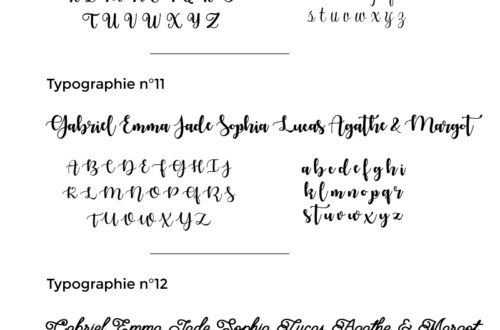 T U V W X Y Z
s t u v w x y z
Typographie n°11
Gabriel Emma Jade Sophia Lucas Agathe & Margot
A B C D E F G H I J
K L M N O P Q R S
T U V W X Y Z
a b c d e f g h i
k l m n o p q r
s t u v w x y z
Typographie n°12
Gabriel Emma Jade Sophia Lucas Agathe & Margot